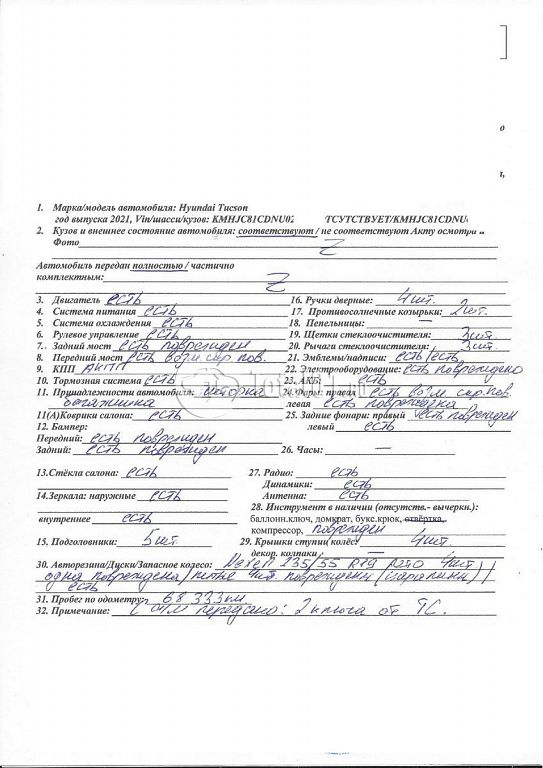 о
г,
1. Марка/модель автомобиля: Hyundai Tucson
год выпуска 2021, Vin/шасси/кузов: KMHJC81CDNU02 ТСУТСТВУЕТ/KMHJC81CDNU
2. Кузов и внешнее состояние автомобиля: соответствуют / не соответствуют Акту осмотра
Фото Z
Автомобиль передан полностью / частично
комплектным: Z
3. Двигатель есть 16. Ручки дверные: 4 шт.
4. Система питания есть 17. Противосолнечные козырьки: 2 шт.
5. Система охлаждения есть 18. Пепельницы: —
6. Рулевое управление есть 19. Щетки стеклоочистителя: 3 шт
7. Задний мост есть поврежден 20. Рычаги стеклоочистителя: 3 шт.
8. Передний мост есть возм. скр. пов. 21. Эмблемы/надписи: есть/есть
9. КПП АКПП 22. Электрооборудование: есть повреждено
10. Тормозная система есть 23. АКБ: есть
11. Принадлежности автомобиля: шторка 24. Фары: правая есть возм. скр. пов
багажника левая есть повреждена
11(А)Коврики салона: есть 25. Задние фонари: правый есть поврежден
12. Бампер: левый есть
Передний: есть поврежден
Задний: есть поврежден 26. Часы: —
13.Стёкла салона: есть 27. Радио: есть
Динамики: есть
14.Зеркала: наружные есть Антенна: есть
28. Инструмент в наличии (отсутств.- вычеркн.):
внутреннее есть баллонн.ключ, домкрат, букс.крюк, отвёртка,
компрессор, поврежден
15. Подголовники: 5 шт. 29. Крышки ступиц колёс: 4 шт.
декор. колпаки —
30. Авторезина/Диски/Запасное колесо: Nexen 235/55 R19 4 шт.
одна повреждена/ литые 4 шт. повреждены (царапины)/
есть
31. Пробег по одометру: 68 333 км.
32. Примечание: С а/м передано: 2 ключа от ТС.